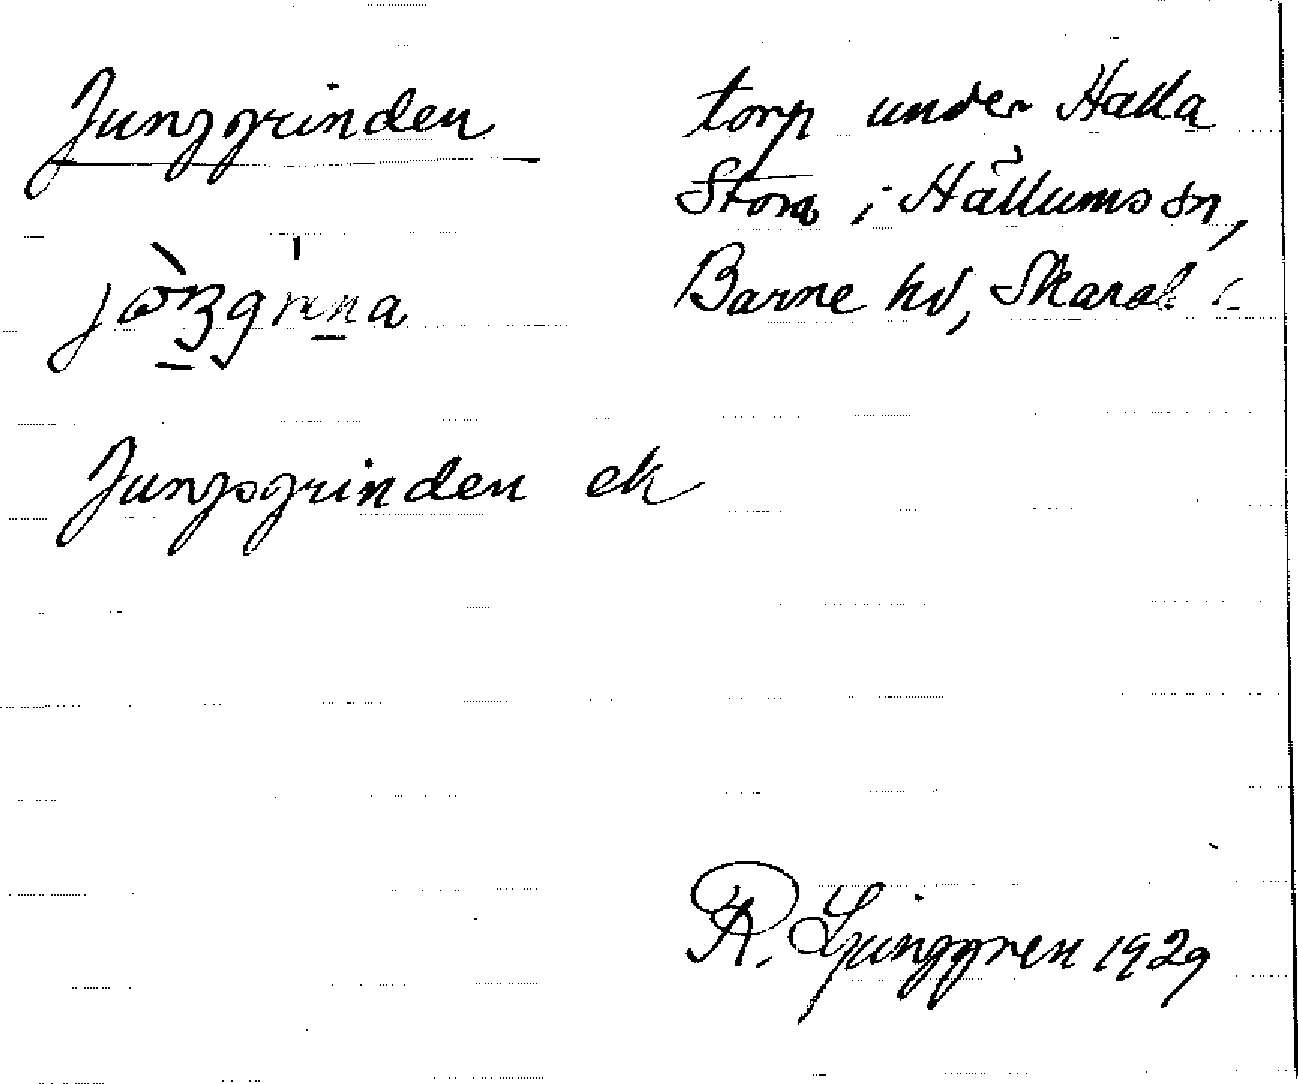 Junggrinden
torp under Halla
Stora i Hällums sn,
Barne hd, Skarab
Jungsgrinden ek
R. Ljunggren 1929